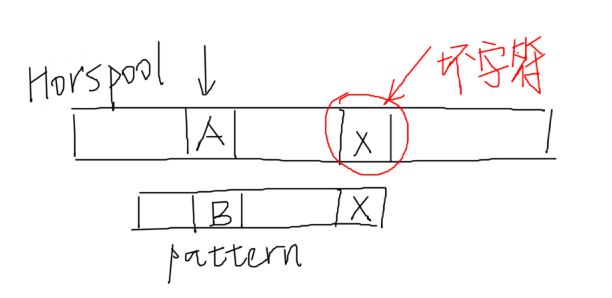 Horspool
坏字符
A X
B X
pattern